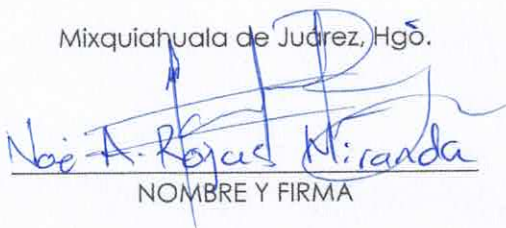 Mixquiahuala de Juárez, Hgo.
Noé A. Rojas Miranda
NOMBRE Y FIRMA